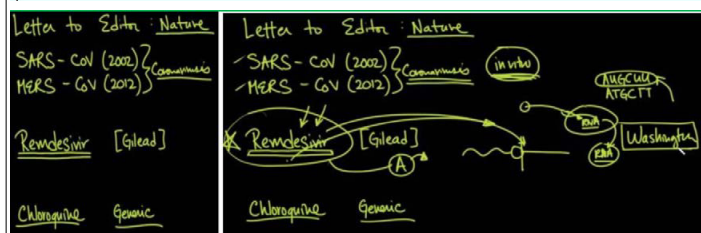 Letter to Editor : Nature
SARS - CoV (2002)
MERS - CoV (2012)
Coronavirus
Remdesivir [Gilead]
Chloroquine Generic
Letter to Editor : Nature
SARS - CoV (2002)
MERS - CoV (2012)
Coronavirus
in vitro
AUGCUU
ATGCTT
RNA
Remdesivir [Gilead]
A
RNA
Washington
Chloroquine Generic